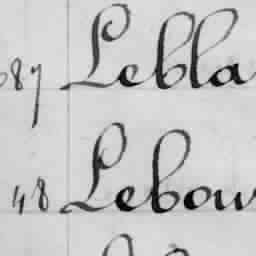 87 Lebla
48 Lebou